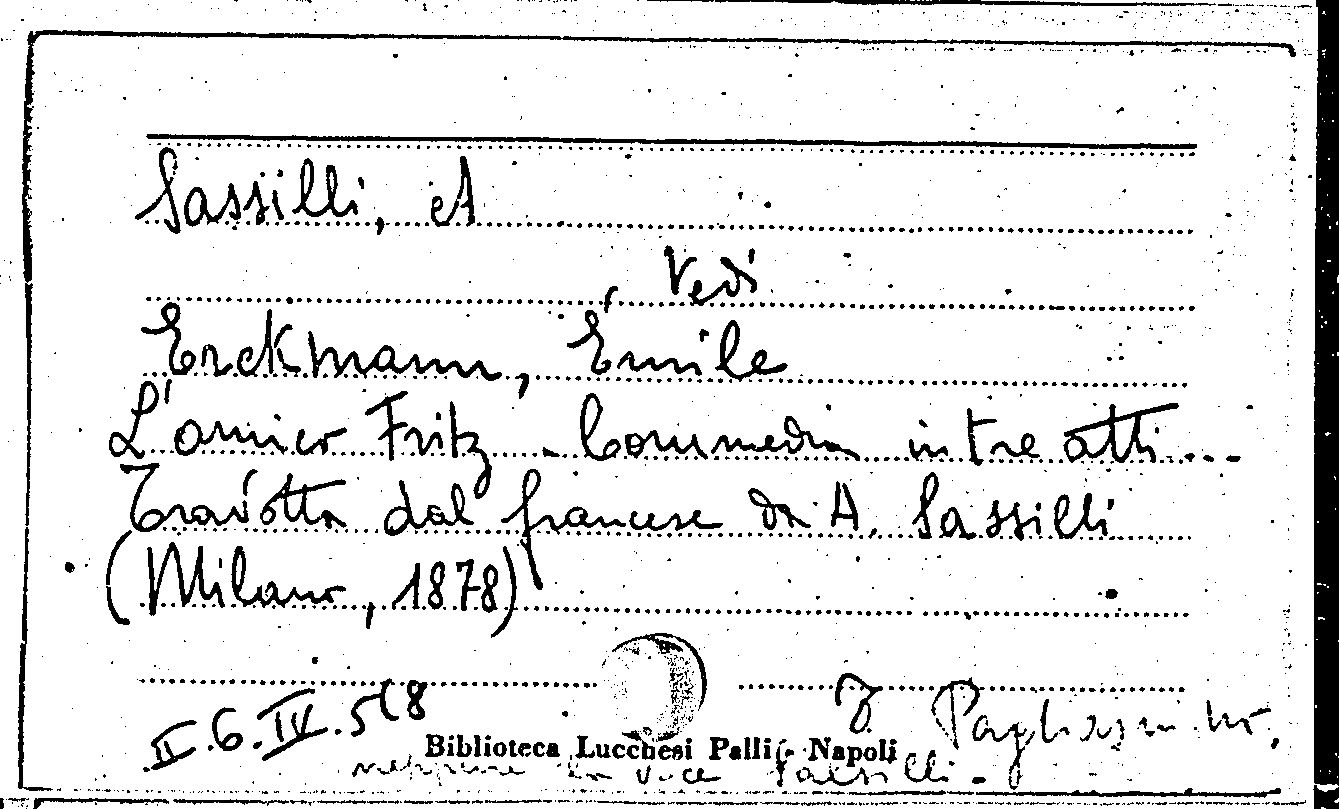 Sassilli, A
, Vedi
Erckmann, Émile
L'amico Fritz - Commedia in tre atti...
Tradotta dal francese da A. Sassilli
(Milano, 1878)
II.6.IV.5(8
Biblioteca Lucchesi Palli - Napoli
neppure la voce Salsilli -